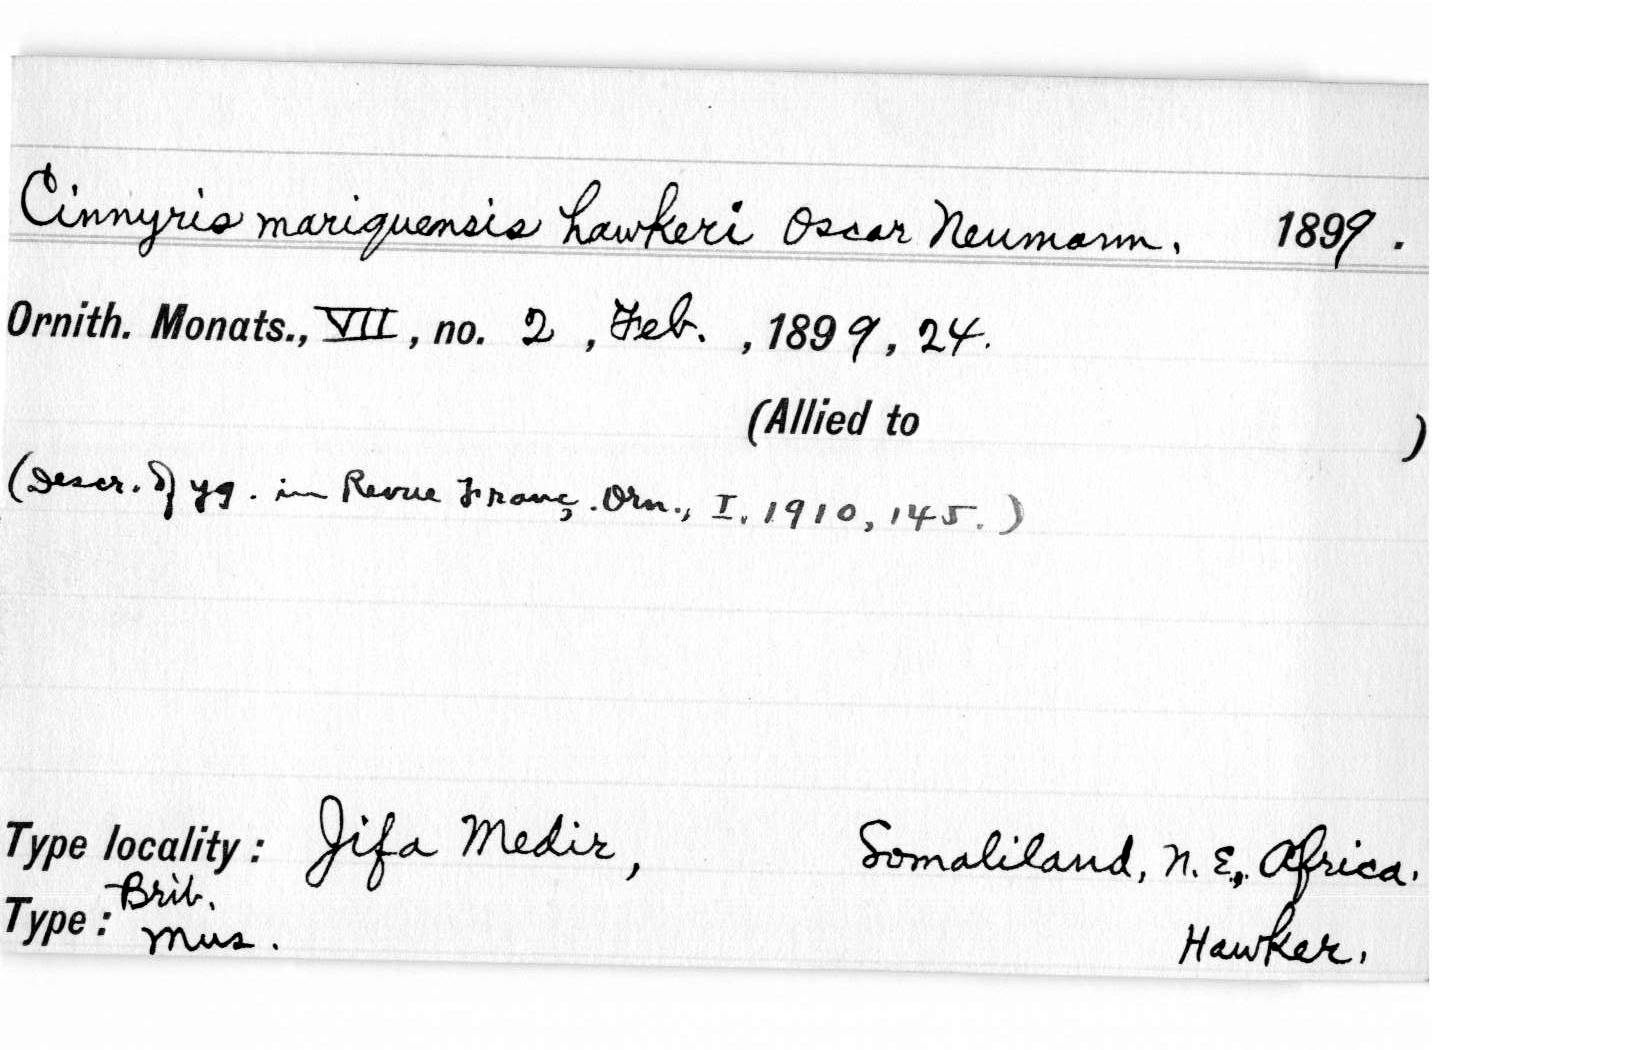 Cinnyris mariquensis hawkeri Oscar Neumann. 1899.
Ornith. Monats., VII, no. 2, Feb., 1899, 24.
(Allied to )
(Descr. of yg. in Revue Franç. Orn., I, 1910, 145.)
Type locality: Jifa Medir, Somaliland, N. E. Africa.
Type: Brit. Mus. Hawker.